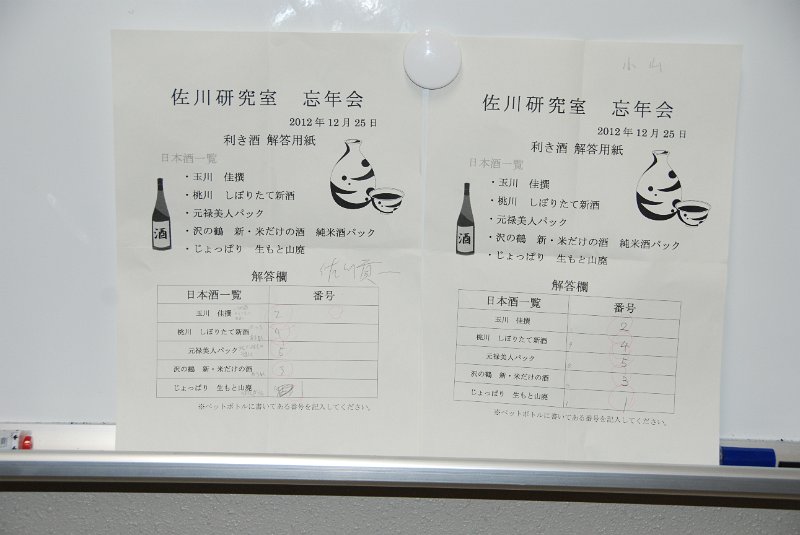 佐川研究室　忘年会
2012年12月25日
利き酒 解答用紙
日本酒一覧
・玉川　佳撰
・桃川　しぼりたて新酒
・元禄美人パック
・沢の鶴　新・米だけの酒　純米酒パック
・じょっぱり　生もと山廃
酒
佐川貢一
解答欄
日本酒一覧　番号
玉川　佳撰　2
桃川　しぼりたて新酒　4
元禄美人パック　5
沢の鶴　新・米だけの酒　3
じょっぱり　生もと山廃
※ペットボトルに書いてある番号を記入してください。
小山
佐川研究室　忘年会
2012年12月25日
利き酒 解答用紙
日本酒一覧
・玉川　佳撰
・桃川　しぼりたて新酒
・元禄美人パック
・沢の鶴　新・米だけの酒　純米酒パック
・じょっぱり　生もと山廃
酒
解答欄
日本酒一覧　番号
玉川　佳撰　2
桃川　しぼりたて新酒　4
元禄美人パック　5
沢の鶴　新・米だけの酒　3
じょっぱり　生もと山廃　1
※ペットボトルに書いてある番号を記入してください。